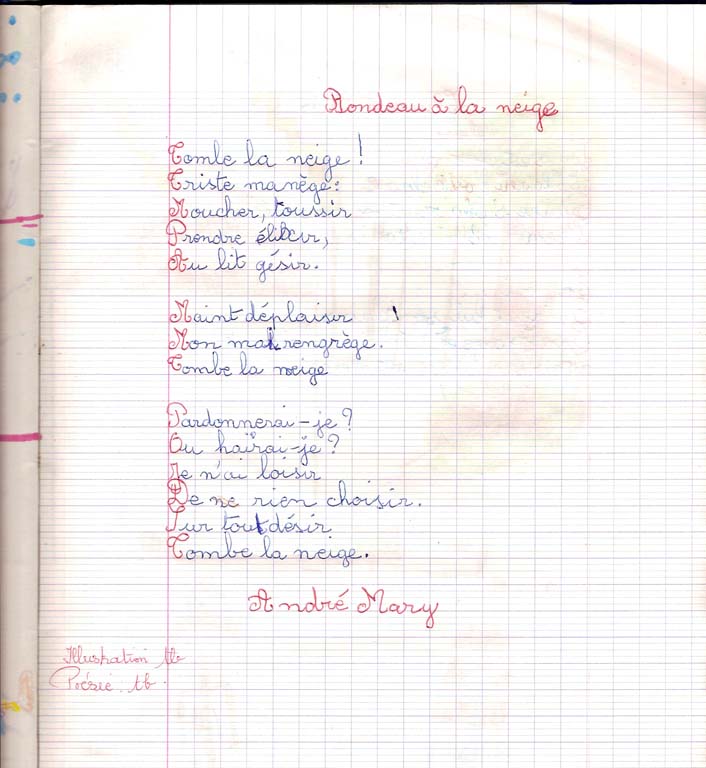 Rondeau à la neige
Tombe la neige !
Triste manège :
Moucher, toussir
Prendre élixir,
Au lit gésir.
Maint déplaisir
Mon mal rengrège.
Tombe la neige
Pardonnerai-je ?
Ou haïrai-je ?
Je n'ai loisir
De ne rien choisir.
Sur tout désir
Tombe la neige.
André Mary
Illustration tb
Poésie tb